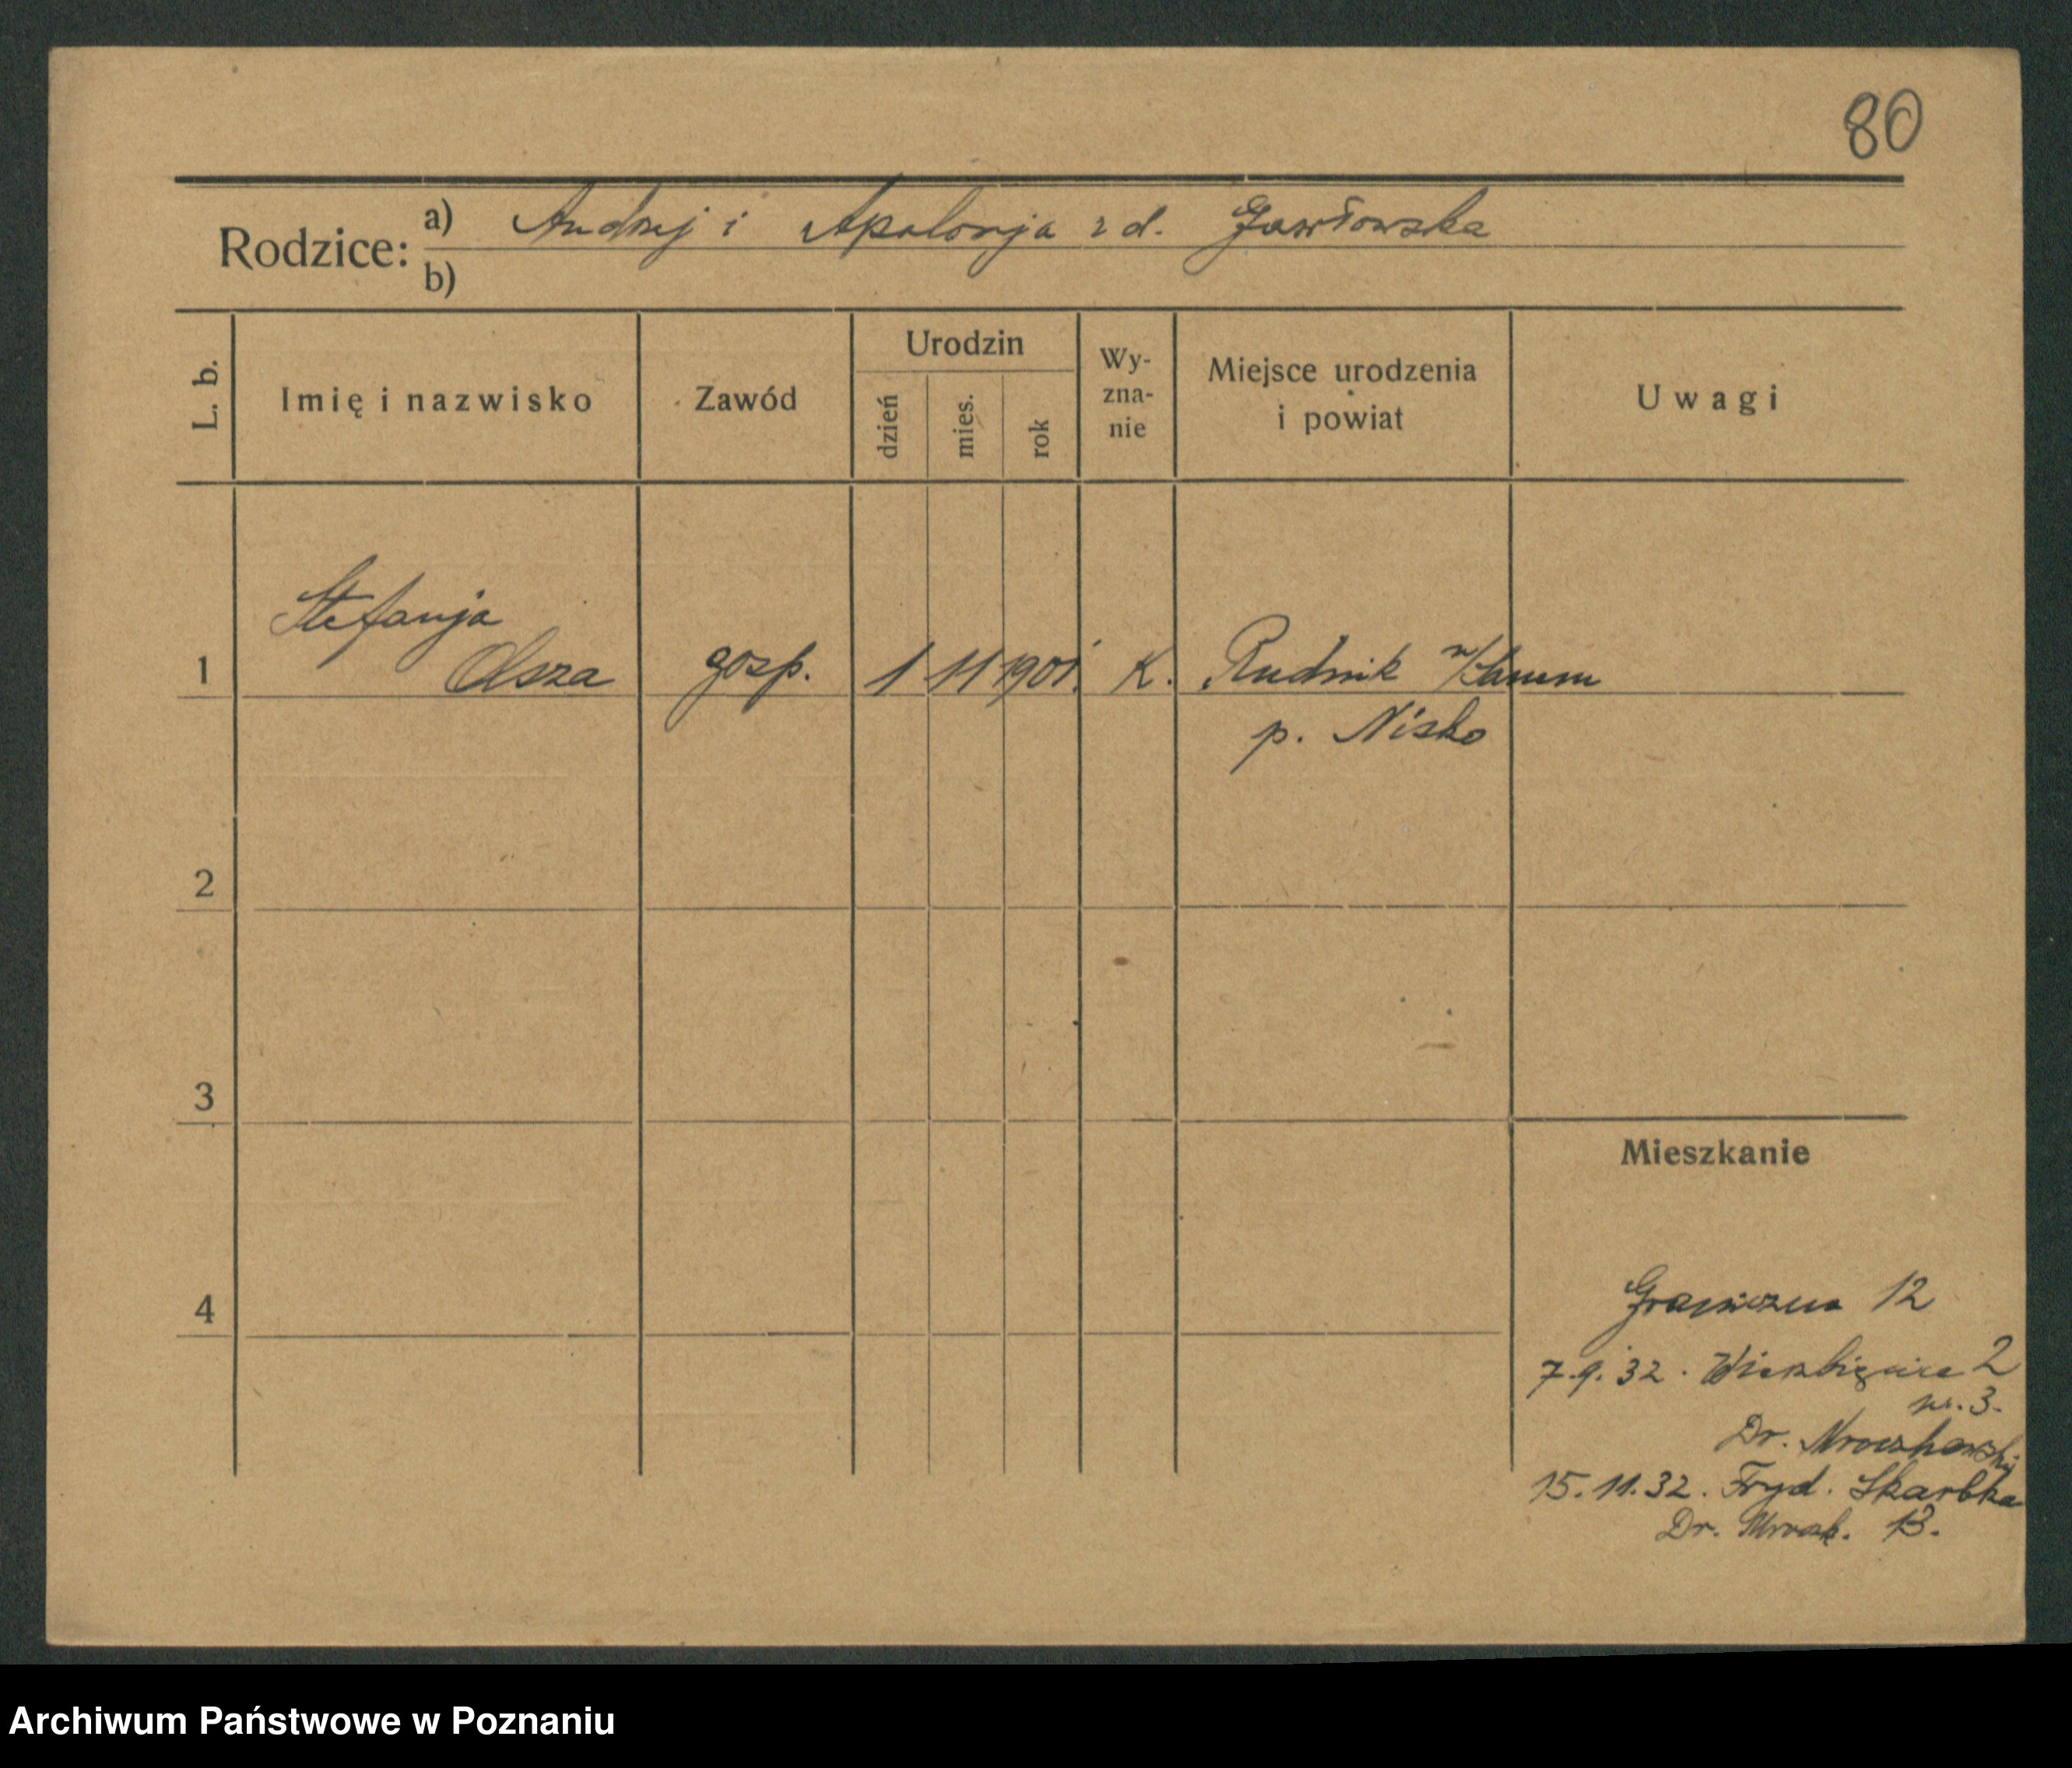 80
Rodzice: a) Andrzej i Apolonja z d. Gawłowska
b)
L. b. Imię i nazwisko Zawód Urodzin dzień mies. rok Wy-zna-nie Miejsce urodzenia i powiat Uwagi
Stefanja
1 Olsza gosp. 1 11 1901. K. Rudnik n/Sanem
p. Nisko
2
3
Mieszkanie
4
Graniczna 12
7.9.32. Wierzbięcice 2
3.
Dr. Mroczkowski
15.11.32. Fryd. Skarbka
Dr. Mrocz. 13.
Archiwum Państwowe w Poznaniu